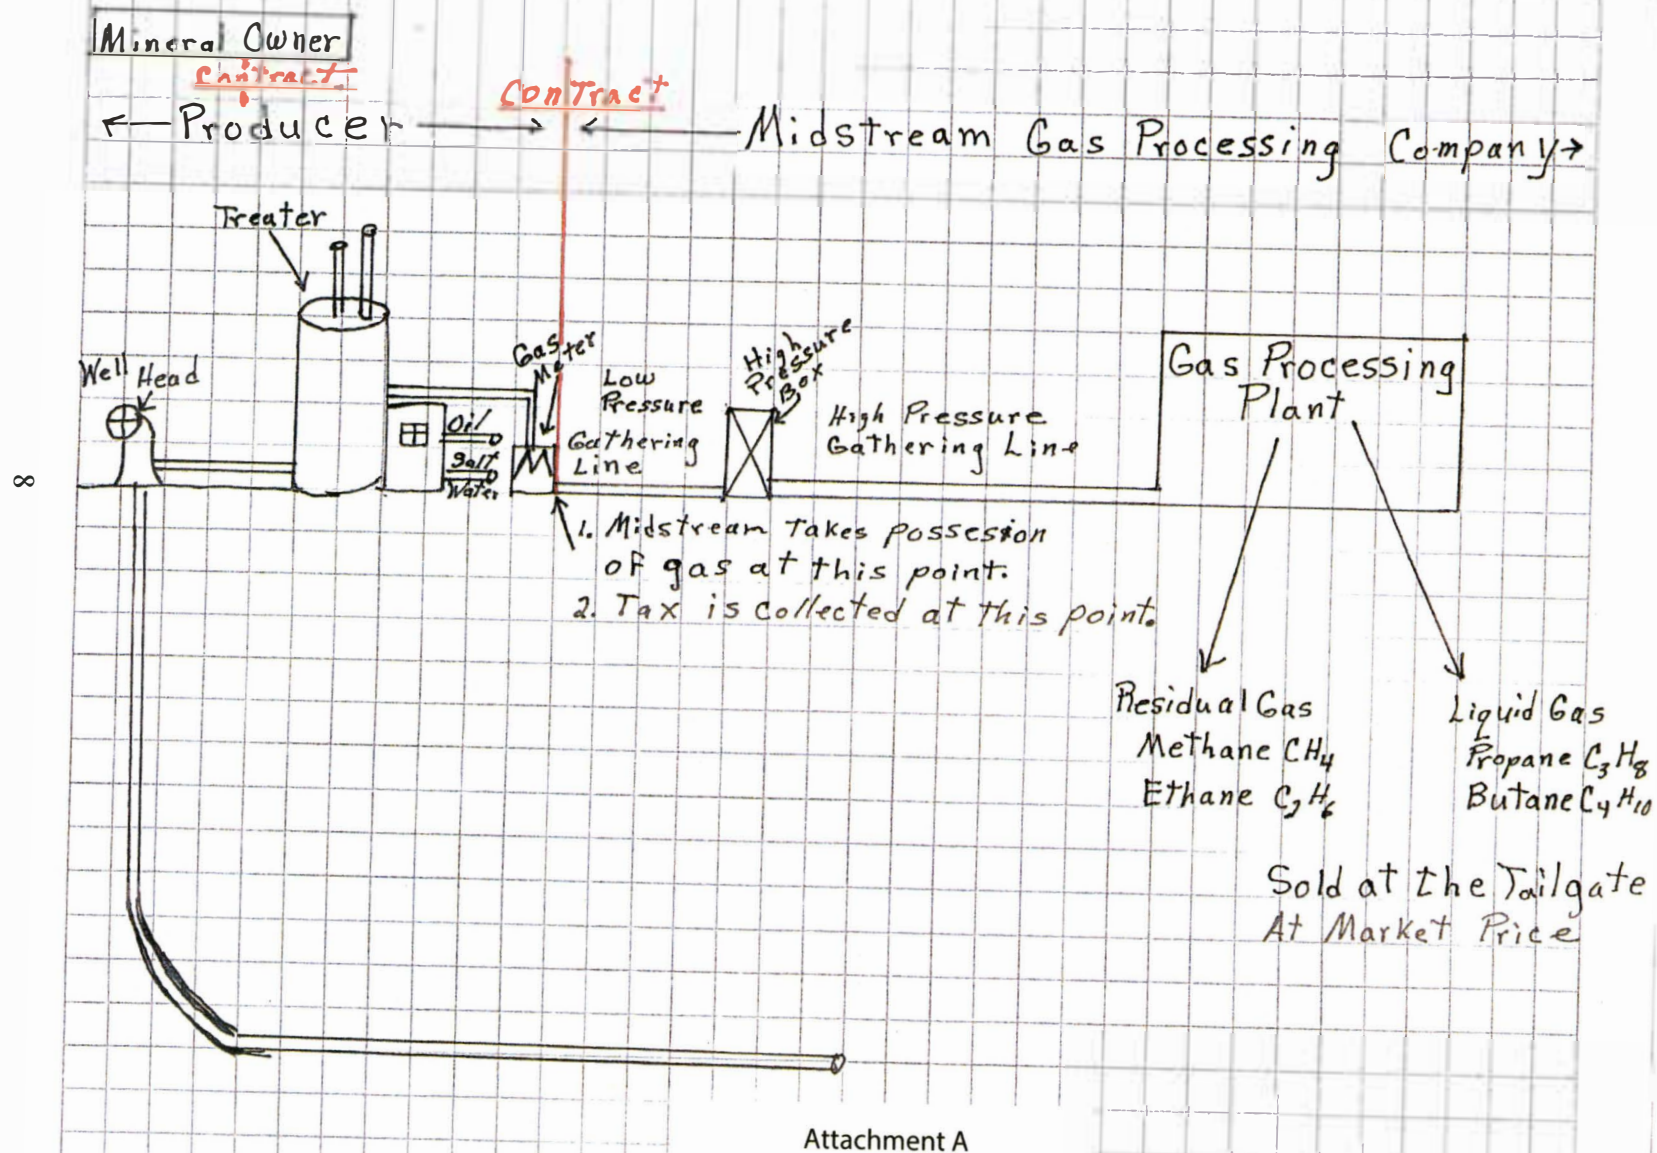 Mineral Owner
Contract
Contract
← Producer →
← Midstream Gas Processing Company →
Treater
Well Head
Oil
Salt
Water
Gas
Meter
Low
Pressure
Gathering
Line
High
Pressure
Box
High Pressure
Gathering Line
Gas Processing
Plant
8
1. Midstream Takes possesion
of gas at this point.
2. Tax is collected at this point.
Residual Gas
Methane CH₄
Ethane C₂H₆
Liquid Gas
Propane C₃H₈
Butane C₄H₁₀
Sold at the Tailgate
At Market Price
Attachment A